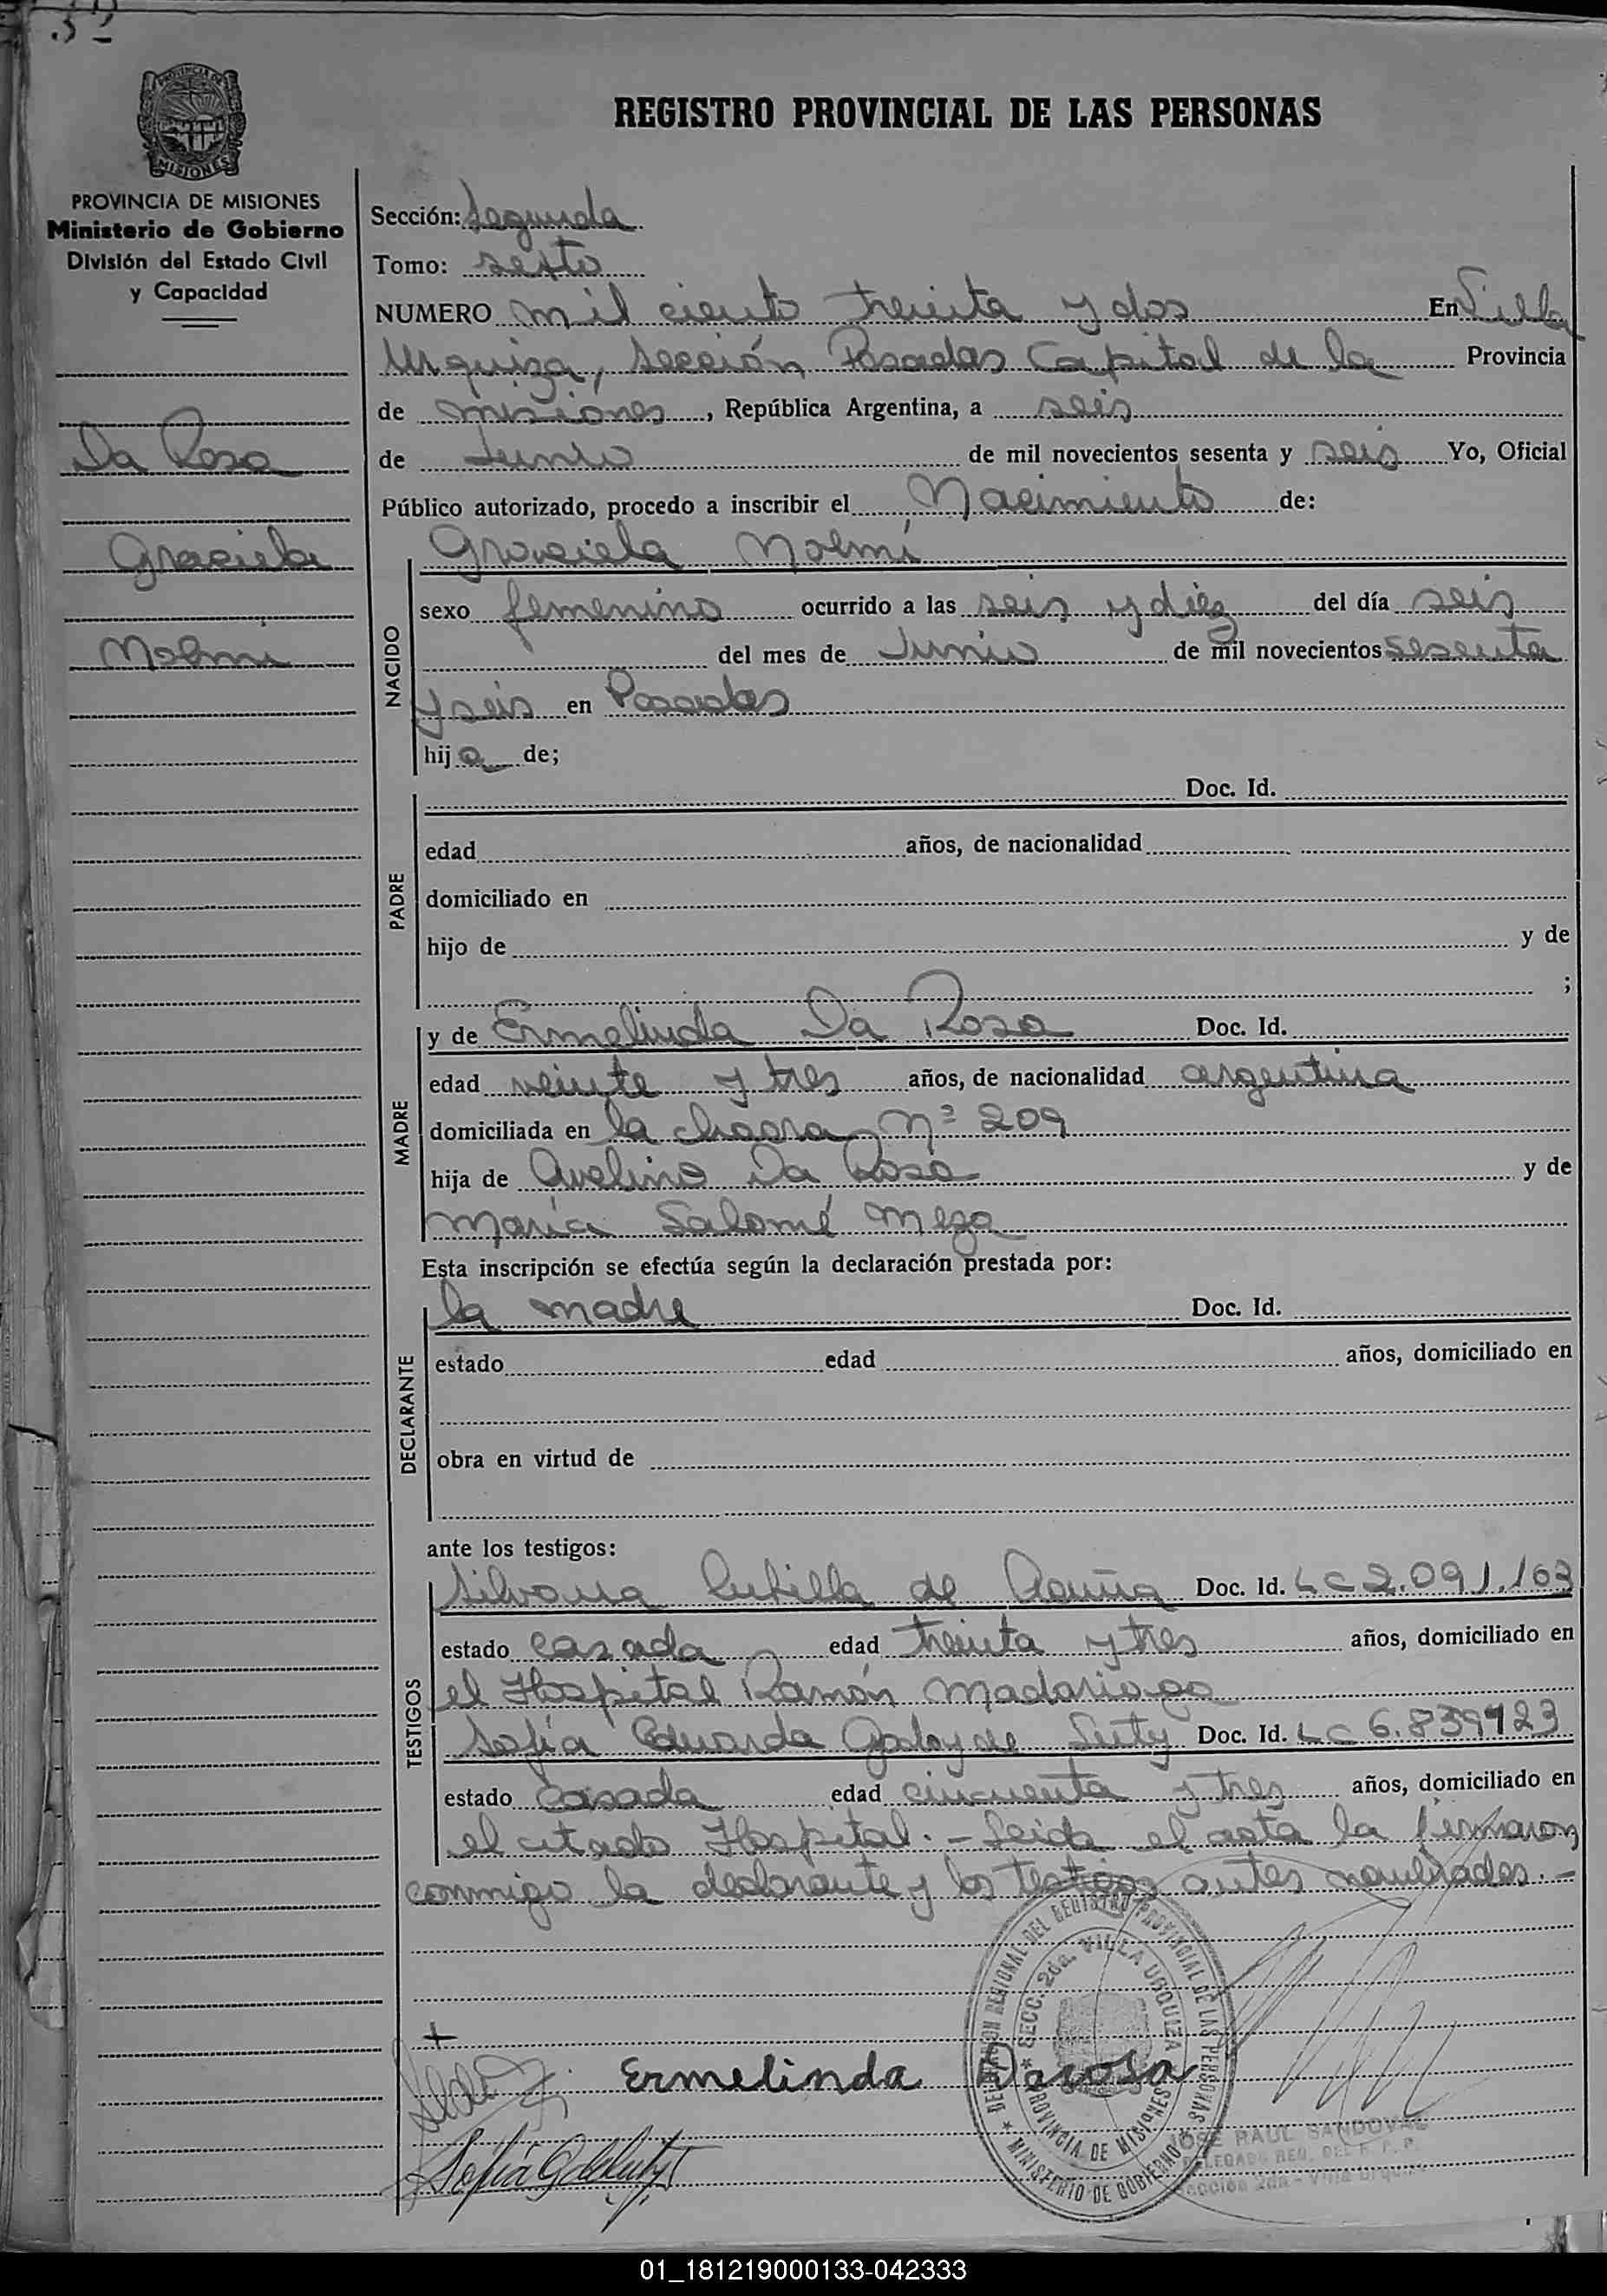 REGISTRO PROVINCIAL DE LAS PERSONAS
PROVINCIA DE MISIONES
Ministerio de Gobierno
División del Estado Civil
y Capacidad
Da Rosa
Graciela
Noemí
Sección: Segunda
Tomo: sexto
NUMERO mil ciento treinta y dos En Villa
Urquiza, Sección Posadas Capital de la Provincia
de misiones, República Argentina, a seis
de Junio de mil novecientos sesenta y seis Yo, Oficial
Público autorizado, procedo a inscribir el Nacimiento de:
NACIDO
Graciela Noemí
sexo femenino ocurrido a las seis y diez del día seis
del mes de Junio de mil novecientos sesenta
y seis en Posadas
hija de;
PADRE
Doc. Id.
edad años, de nacionalidad
domiciliado en
hijo de y de
;
MADRE
y de Ermelinda Da Rosa Doc. Id.
edad veinte y tres años, de nacionalidad argentina
domiciliada en la chacra Nº 209
hija de Avelino Da Rosa y de
María Salomé Meza
Esta inscripción se efectúa según la declaración prestada por:
DECLARANTE
la madre Doc. Id.
estado edad años, domiciliado en
obra en virtud de
ante los testigos:
TESTIGOS
Silvana de Acuña Doc. Id. LC 2.091.163
estado casada edad treinta y tres años, domiciliado en
el Hospital Ramón Madariaga
Sofía Eduarda Doc. Id. LC 6.839923
estado casada edad cincuenta y tres años, domiciliado en
el citado Hospital.- Leida el acta la firmaron
conmigo la declarante y los testigos antes nombrados.-
Ermelinda Darosa
DELEGACION REGIONAL DEL REGISTRO PROVINCIAL DE LAS PERSONAS
MINISTERIO DE GOBIERNO
SECC. 2da. VILLA URQUIZA
PROVINCIA DE MISIONES
JOSE RAUL SANDOVAL
DELEGADO REG. DEL R. P. P.
Sección 2da - Villa Urquiza
01_181219000133-042333